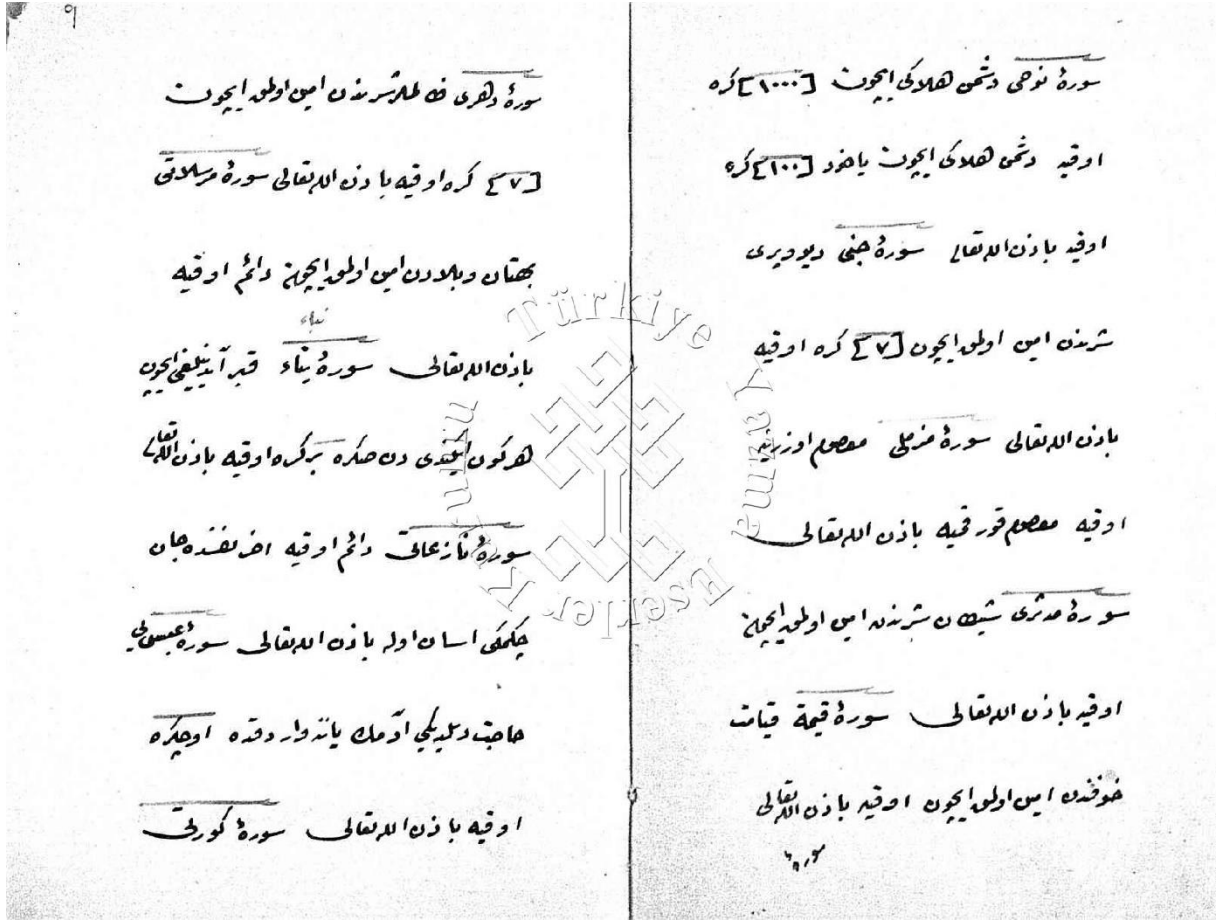 سورۀ نوحی دشمن هلاکی ایچون [١٠٠٠] کره
اوقیه دشمن هلاکی ایچون یاخود [١٠٠] کره
اوقیه باذن الله تعالی سورۀ جنی دیو و پری
شرندن امین اولمق ایچون [٧] کره اوقیه
باذن الله تعالی سورۀ مزملی معصوم اوزرینه
اوقیه معصوم قورقمیه باذن الله تعالی
سورۀ مدثری شیطان شرندن امین اولمق ایچون
اوقیه باذن الله تعالی سورۀ قیمة قیامت
خوفندن امین اولمق ایچون اوقیه باذن الله تعالی
سورۀ
٩
سورۀ دهری ظالملر شرندن امین اولمق ایچون
[٧] کره اوقیه باذن الله تعالی سورۀ مرسلاتی
بهتان و بلادن امین اولمق ایچون دائم اوقیه
نباء
باذن الله تعالی سورۀ یتاء قبر آیدینلغی ایچون
هرکون ایکندی دن صکره بر کره اوقیه باذن الله تعالی
سورۀ نازعاتی دائم اوقیه اخر نفسده جان
چکمکی اسان اوله باذن الله تعالی سورۀ عبسی بر
حاجت دیلدیکی آدمك یاننه واردقده اوچ کره
اوقیه باذن الله تعالی سورۀ کورتی
Türkiye Yazma Eserler Kurumu